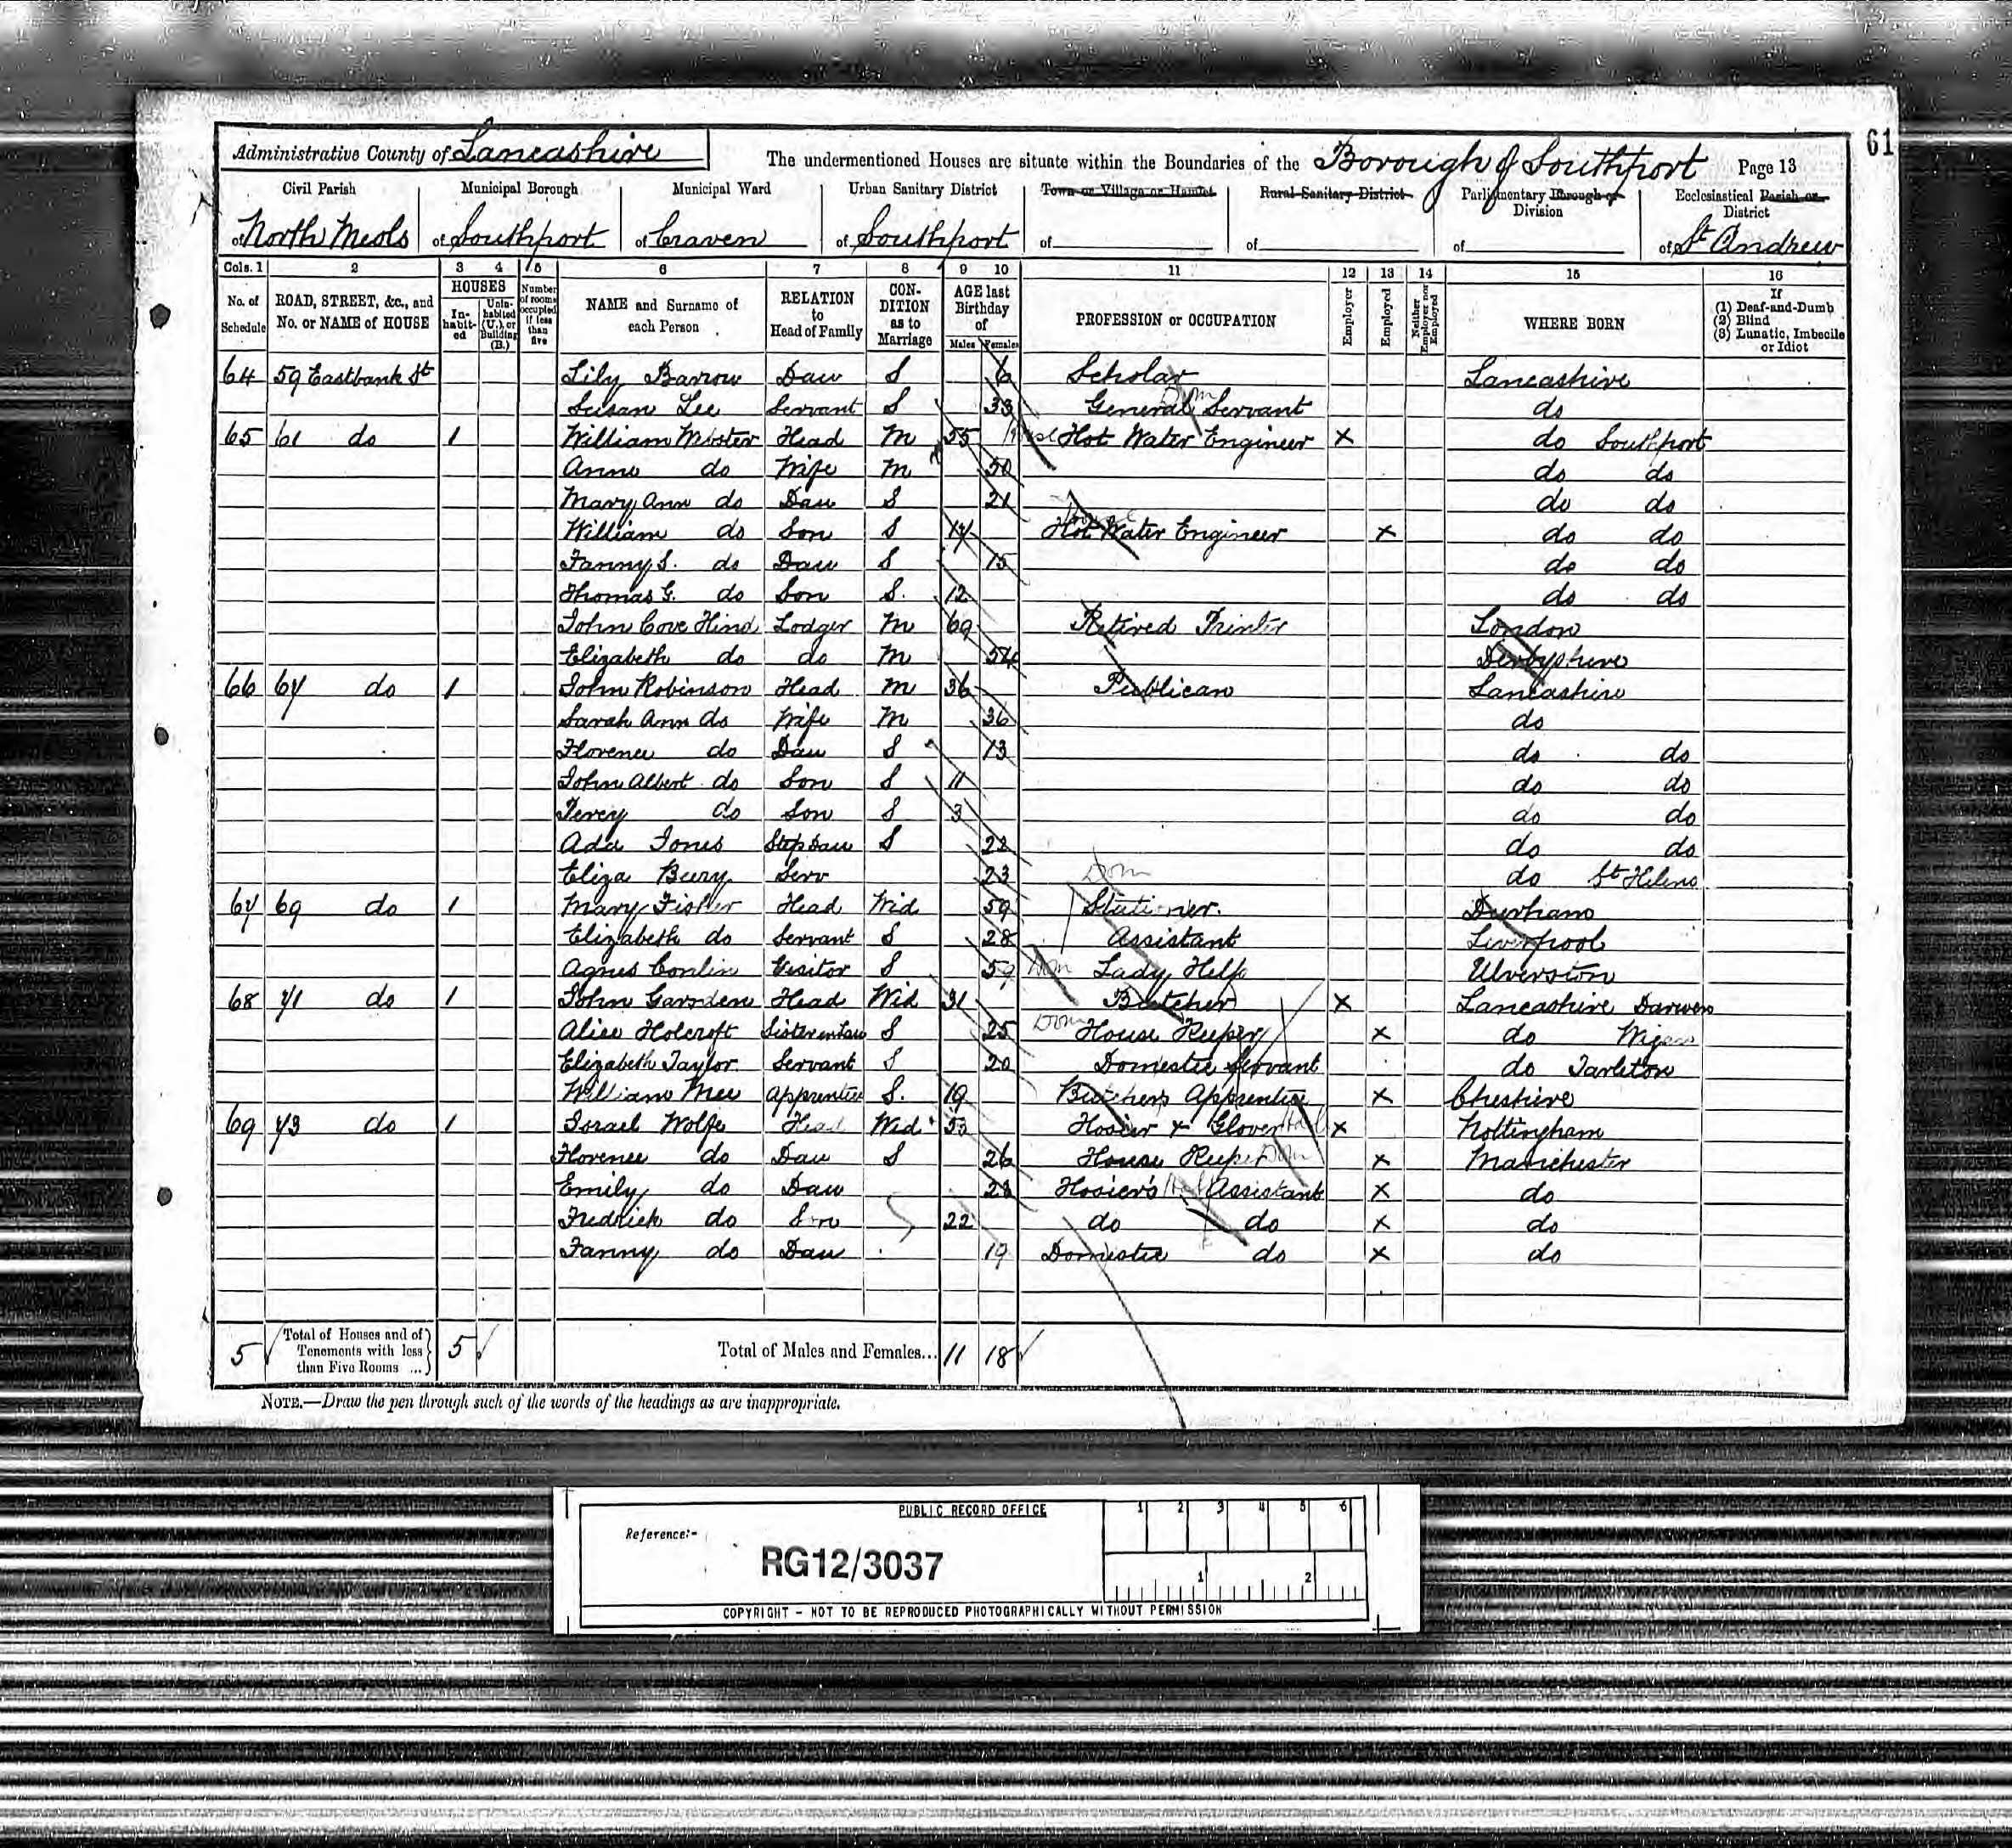 61
Administrative County of Lancashire The undermentioned Houses are situate within the Boundaries of the Borough of Southport Page 13
Civil Parish Municipal Borough Municipal Ward Urban Sanitary District Town or Village or Hamlet Rural Sanitary District Parliamentary Borough or Division Ecclesiastical Parish or District
of North Meols of Southport of Craven of Southport of of of of St Andrew
Cols. 1 2 3 4 5 6 7 8 9 10 11 12 13 14 15 16
No. of Schedule ROAD, STREET, &c., and No. or NAME of HOUSE HOUSES Inhabited Uninhabited (U.) or Building (B.) Number of rooms occupied if less than five NAME and Surname of each Person RELATION to Head of Family CONDITION as to Marriage AGE last Birthday of Males Females PROFESSION or OCCUPATION Employer Employed Neither Employer nor Employed WHERE BORN If (1) Deaf-and-Dumb (2) Blind (3) Lunatic, Imbecile or Idiot
64 59 Eastbank St Lily Barrow Daw S 6 Scholar Lancashire
Susan Lee Servant S 33 General Servant Dom do
65 61 do 1 William Head M 55 Hot Water Engineer X do Southport
Anne do Wife M 50 do do
Mary Ann do Daw S 21 do do
William do Son S 17 Hot Water Engineer X do do
Fanny S. do Daw S 15 do do
Thomas G. do Son S. 12 do do
John Cove Hind Lodger M 69 Retired Printer London
Elizabeth do do M 54 Derbyshire
66 67 do 1 John Robinson Head M 36 Publican Lancashire
Sarah Ann do Wife M 36 do
Florence do Daw S 13 do do
John Albert do Son S 11 do do
Percy do Son S 3 do do
Ada Jones Step Daw S 22 do do
Eliza Bury Serv 23 Dom do St Helens
67 69 do 1 Mary Fisher Head Wid 59 Stationer. Durham
Elizabeth do Servant S 28 Assistant Liverpool
Agnes Conlin Visitor S 59 Dom Lady Help Ulverston
68 71 do 1 John Garsden Head Wid 31 Butcher X Lancashire Darwen
Alice Holcroft Sister in Law S 25 Dom House Keeper X do Wigan
Elizabeth Taylor Servant S 20 Domestic Servant do Tarleton
William Mee Apprentice S. 19 Butchers Apprentice X Cheshire
69 73 do 1 Israel Wolfe Head Wid 53 Hosier + Glover X Nottingham
Florence do Daw S 26 House Keeper Dom X Manchester
Emily do Daw 23 Hosier's Assistant X do
Fredrick do Son 22 do do X do
Fanny do Daw 19 Domestic do X do
5 Total of Houses and of Tenements with less than Five Rooms ... 5 Total of Males and Females... 11 18
NOTE.—Draw the pen through such of the words of the headings as are inappropriate.
PUBLIC RECORD OFFICE 1 2 3 4 5 6
Reference:-
RG12/3037 1 2
COPYRIGHT - NOT TO BE REPRODUCED PHOTOGRAPHICALLY WITHOUT PERMISSION